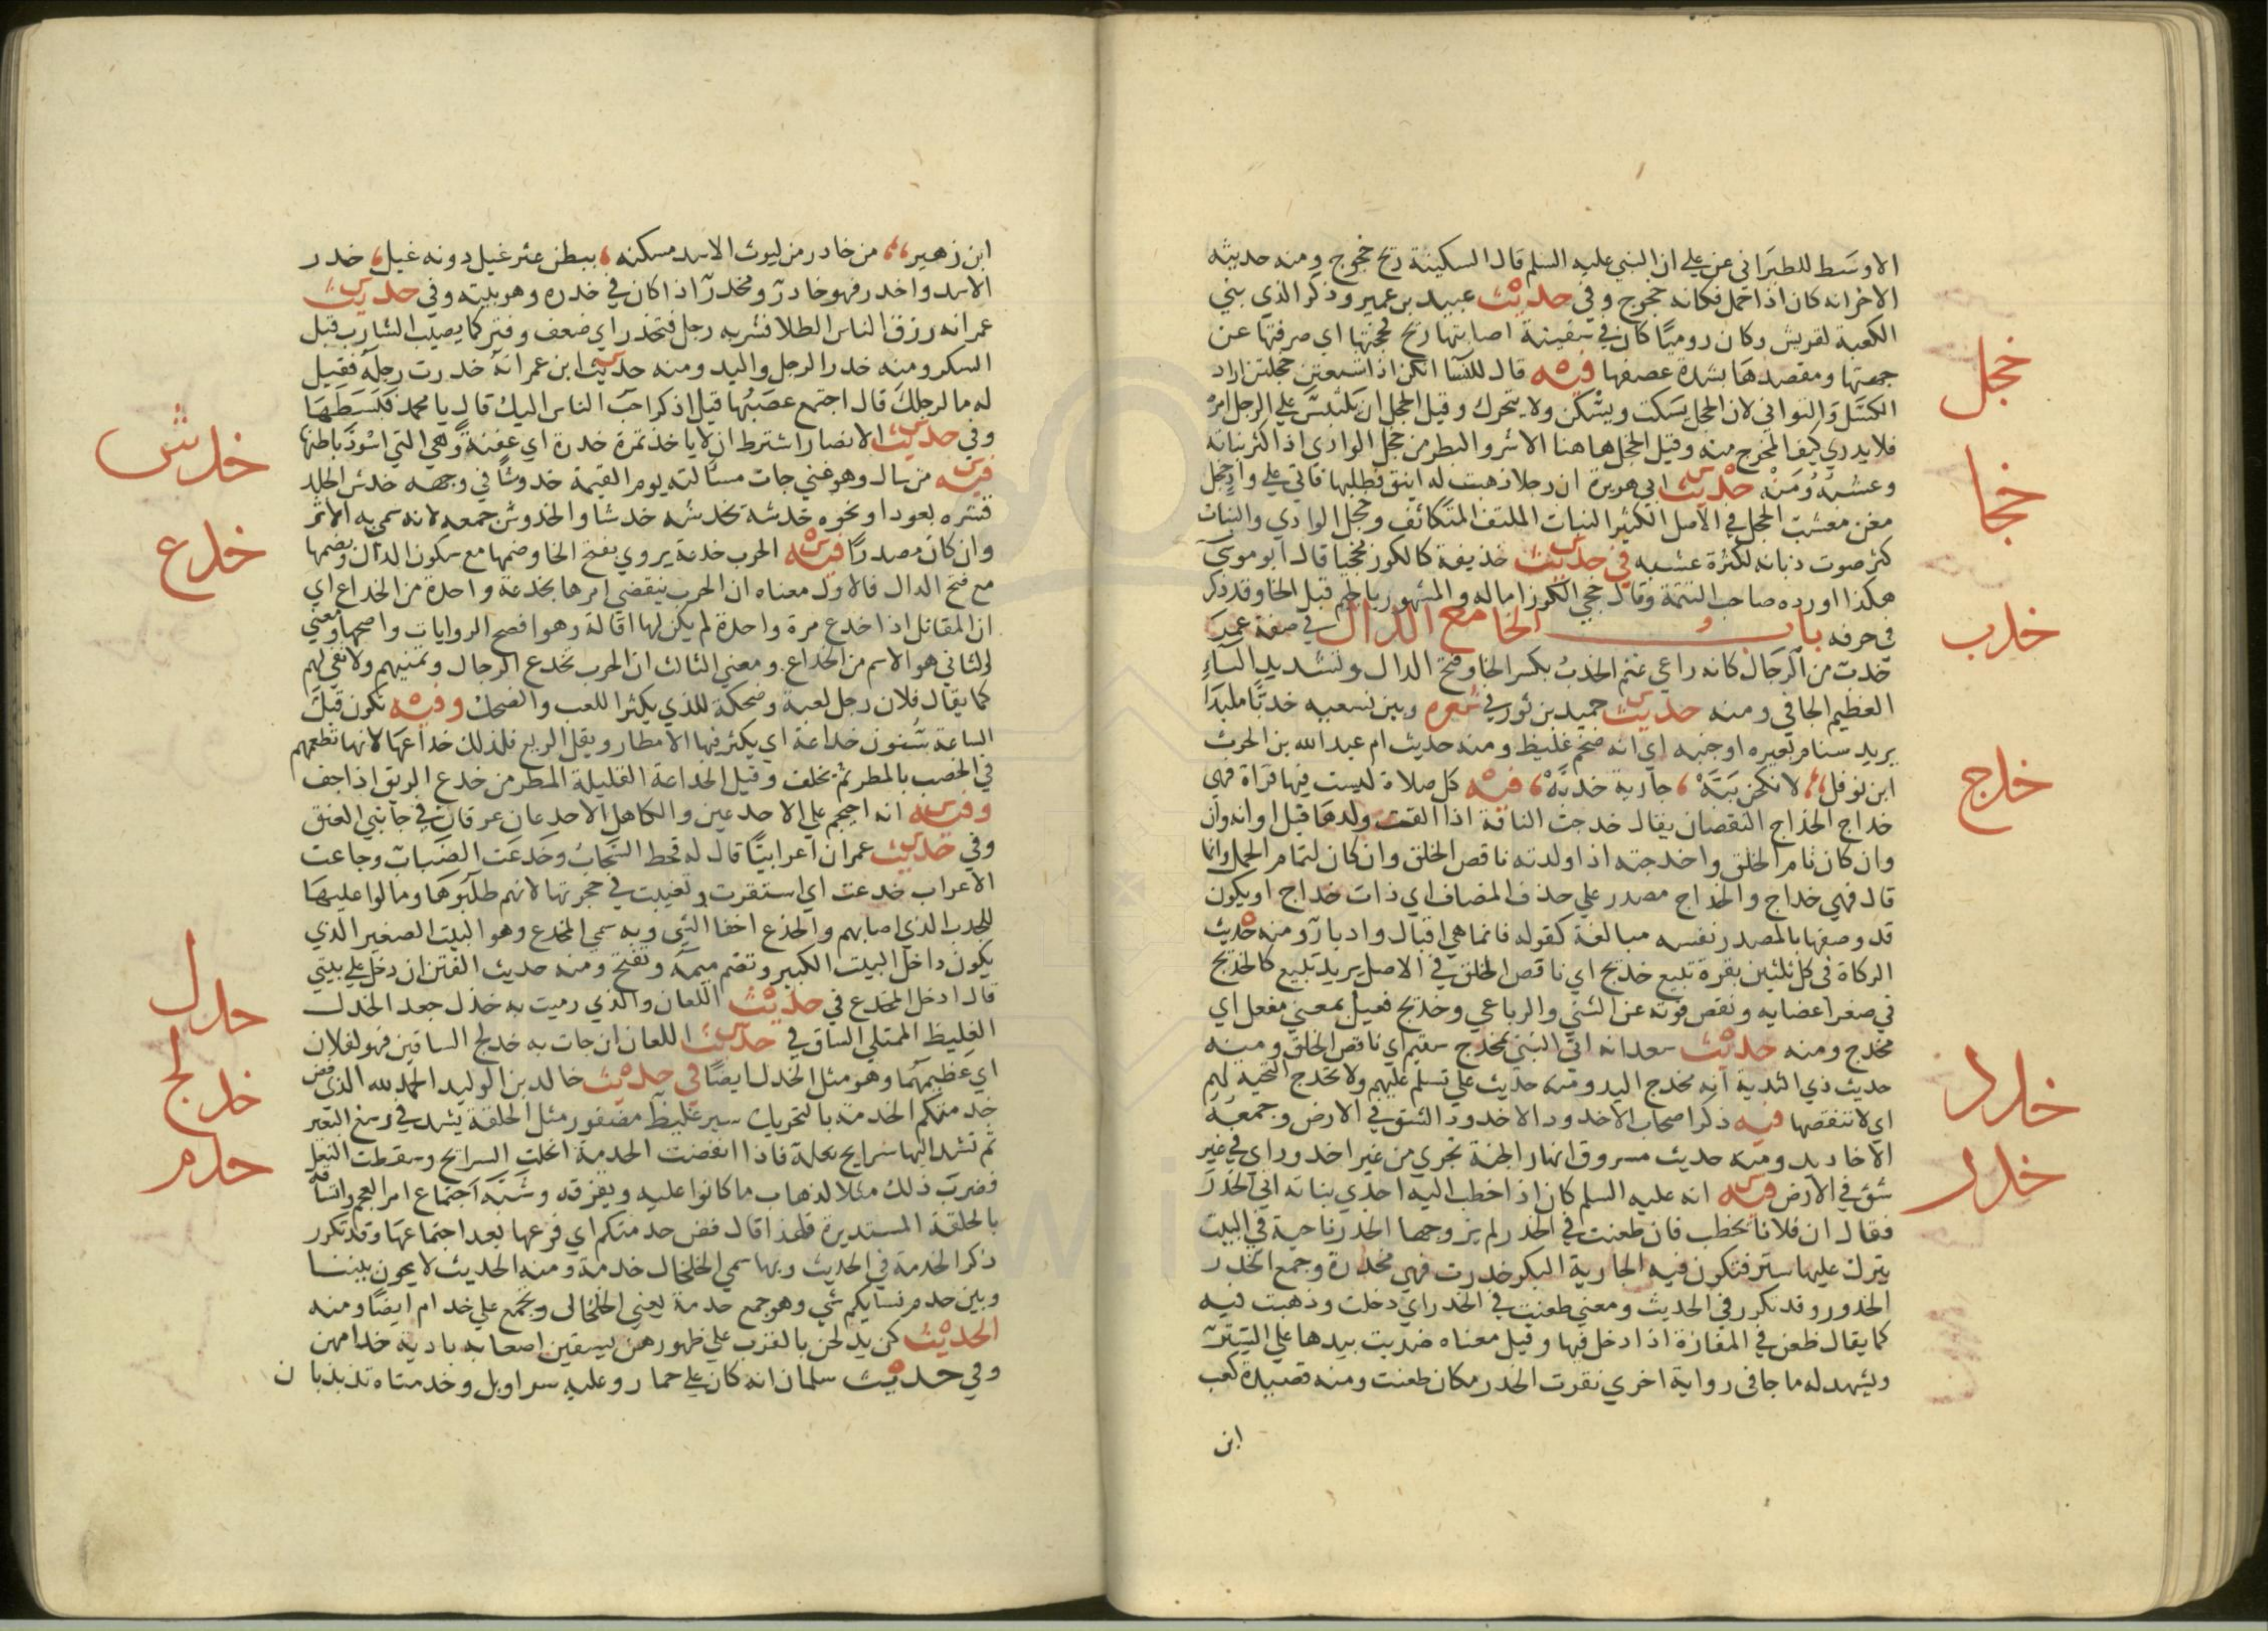 الاوسَط للطبَراني عن علي ان النبي عليه السلم قال السكينة ريح خجوج ومنه حديثه
الاخر انه كان اذا حمل فكانه خجوج وفي حديث عبيد بن عمير وذكر الذي بني
الكعبة لقريش وكان روميًا كان في سفينة اصابتها ريح فخجتها اي صرفتها عن
جهتها ومقصدها بشدة عصفها فيه قال للنسآ انكن اذا شبعتن خجلتن اراد
خجل
الكسَل والتواني لان الخجل يسكت ويسْكن ولا يتحرك وقيل الخجل ان يلتبس علي الرجل امره
فلا يدري كيف المخرج منه وقيل الخجل هاهنا الاشر والبطر من خجل الوادي اذا كثر نباته
وعشبهُ ومَنْه حديث ابي هريرة ان رجلا ذهبت له اينق فطلبها فاتي علي وادٍ خجل
خجا
مغن معشب الخجل في الاصل الكثير النبات الملتف المتكاثف وخجل الوادي والنبات
كثر صوت ذبابه لكثرة عشبه في حديث حذيفة كالكوز مخجيا قال ابو موسي
هكذا اورده صاحب التتمة وقال خجي الكوز اماله والمشهور بالجيم قبل الخا وقد ذكر
في حرفه باب الخا مع الدال في صفة عمر
خدب
خدبّ من الرجال كانه راعي غنم الخدبُ بكسر الخا وفتح الدال وتشديد البآءِ
العظيم الجافي ومنه حديث حميد بن ثور في شعره وبين نسعيه خدبًّا ملبدًا
يريد سنام بعيره او جنبه اي انه ضخم غليظ ومنه حديث ام عبد الله بن الحرث
ابن نوفل، لانكحن بَبَّهْ، جارية خدبّهْ، فيه كل صلاة ليست فيها قراة فهي
خدج
خداج الخداج النقصان يقال خدجت الناقة اذا القت ولدها قبل اوانه وان
وان كان تام الخلق واخدجته اذا ولدته ناقص الخلق وان كان لتمام الحمل وانما
قال فهي خداج والخداج مصدر علي حذف المضاف اي ذات خداج او يكون
قد وصفها بالمصدر نفسه مبالغة كقوله فانما هي اقبال وادبارٌ ومنه حديث
الزكاة في كل ثلثين بقرة تبيع خديج اي ناقص الخلق في الاصل يريد تبيع كالخديج
في صغر اعضايه ونقص قوته عن الثني والرباعي وخديج فعيل بمعني مفعل اي
مخدج ومنه حديث سعد انه اتي النبي بمخدج سقيم اي ناقص الخلق ومنه
حديث ذي الثدية انه مخدج اليد ومنه حديث علي تسلم عليهم ولا تخدج التحية لهم
خدد
اي لا تنقصها فيه ذكر اصحاب الاخدود الاخدود الشق في الارض وجمعه
الاخاديد ومنه حديث مسروق انهار الجنة تجري من غير اخدود اي في غير
خدر
شق في الارض فيه انه عليه السلم كان اذا خطب اليه احدي بناته اتي الخدرَ
فقال ان فلانا يخطب فان طعنت في الخدر لم يزوجها الخدر ناحية في البيت
يترك عليها ستر فتكون فيه الجارية البكر خدرت فهي مخدرة وجمع الخدر
الخدور وقد تكرر في الحديث ومعني طعنت في الخدر اي دخلت وذهبت فيه
كما يقال طعن في المفازة اذا دخل فيها وقيل معناه ضربت بيدها علي الستر
ويشهد له ما جا في رواية اخري نقرت الخدر مكان طعنت ومنه قصيدة كعب
ابن
ابن زهير، من خادر من ليوث الاسد مسكنه، ببطن عثر غيل دونه غيل، خدر
الاسد واخدر فهو خادرٌ ومخدرٌ اذا كان في خدره وهو بيته وفي حديث
عمر انه رزق الناس الطلا فشربه رجل فتخدر اي ضعف وفتر كما يصيب الشارب قبل
السكر ومنه خدر الرجل واليد ومنه حديث ابن عمر انهُ خدرت رجلهُ فقيل
له ما لرجلك قال اجتمع عصَبُها قيل اذكر احبّ الناس اليك قال يا محمد فبَسَطها
وفي حديث الانصار اشترط ان لا ياخذ تمرة خدرة اي عفنة وهي التي اسْودّ باطنها
خدش
فيه من سال وهو غني جات مسالته يوم القيمة خدوشًا في وجهه خدش الجلد
قشره بعود او نحوه خدشه يخدشه خدشا والخدوش جمعه لانه سمي به الاثر
وان كان مصدرًا فيه الحرب خدعة يروي بفتح الخا وضمها مع سكون الدال وبضمها
خدع
مع فتح الدال فالاول معناه ان الحرب ينقضي امرها بخدعة واحدة من الخداع اي
ان المقاتل اذا خدع مرة واحدة لم يكن لها اقالة وهو افصح الروايات واصحها ومعني
الثاني هو الاسم من الخداع ومعني الثالث ان الحرب تخدع الرجال وتمنيهم ولا تفي لهم
كما يقال فلان رجل لعبة وضحكة للذي يكثر اللعب والضحك وفيه تكون قبلَ
الساعة سنون خداعة اي يكثر فيها الامطار ويقل الريع فلذلك خداعَها لانها تطعمهم
في الخصب بالمطر ثم تخلف وقيل الخداعة القليلة المطر من خدع الريق اذا جف
وفيه انه احتجم علي الاخدعين والكاهل الاخدعان عرقان في جانبي العنق
وفي حديث عمر ان اعرابيًّا قال له قحط السَّحابُ وخَدعَت الضّبابُ وجاعت
الاعراب خدعت اي استقرت وتغيبت في جحرتها لانهم طلبُوها ومالوا عليها
للجدب الذي اصابهم والخدع اخفا الشي وبه سمي المخدع وهو البيت الصغير الذي
يكون داخل البيت الكبير وتضم ميمهُ وتفتح ومنه حديث الفتن ان دخل علي بيتي
قال ادخل المخدع في حديث اللعان والذي رميت به خدل جعد الخدل
حدل
الغليظ الممتلي الساق في حديث اللعان ان جات به خدلج الساقين فهو لفلان
خدلج
اي عظيمهُما وهو مثل الخدل ايضًا في حديث خالد بن الوليد الحمد لله الذي فض
خدمتكم الخدمة بالتحريك سير غليظ مضفور مثل الحلقة يشد في رسغ البعير
حدم
ثم تشد اليها سرايح نعله فاذا انفضت الخدمة انحلت السرايح وسقطت النعل
فضربَ ذلك مثلا لذهاب ما كانوا عليه ويفرقه وشبّه اجتماع امر العجم واتساقه
بالحلقة المستديرة فلهذا قال فض خدمتكم اي فرعها بعد اجتماعها وقد تكرر
ذكر الخدمة في الحديث وبها سمي الخلخال خدمة ومنه الحديث لا يحول بيننا
وبين خدم نسايكم شي وهو جمع خدمة يعني الخلخال ويجمع علي خدام ايضًا ومنه
الحديث كن يدلحن بالقرب علي ظهورهن يسقين اصحابه بادية خدامهن
وفي حديث سلمان انه كان علي حمار وعليه سراويل وخدمتاه تذبذبان